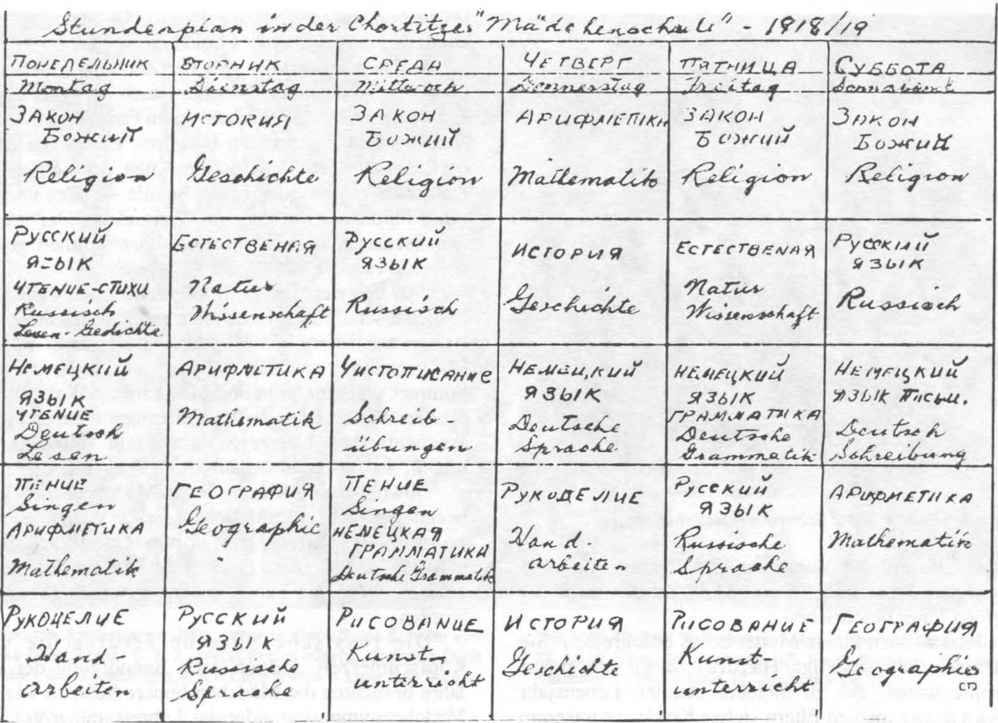 Stundenplan in der Chortitzer "Mädchenschule" - 1918/19
ПОНЕДЕЛЬНИК ВТОРНИК СРЕДА ЧЕТВЕРГ ПЯТНИЦА СУББОТА
Montag Dienstag Mittwoch Donnerstag Freitag Sonnabend
ЗАКОН
БОЖИЙ
Religion
ИСТОРИЯ
Geschichte
ЗАКОН
БОЖИЙ
Religion
АРИФМЕТИКА
Mathematik
ЗАКОН
БОЖИЙ
Religion
ЗАКОН
БОЖИЙ
Religion
РУССКИЙ
ЯЗЫК
ЧТЕНИЕ-СТИХИ
Russisch
Lesen-Gedichte
ЕСТЕСТВЕНАЯ
Natur
Wissenschaft
РУССКИЙ
ЯЗЫК
Russisch
ИСТОРИЯ
Geschichte
ЕСТЕСТВЕНАЯ
Natur
Wissenschaft
РУССКИЙ
ЯЗЫК
Russisch
НЕМЕЦКИЙ
ЯЗЫК
ЧТЕНИЕ
Deutsch
Lesen
АРИФМЕТИКА
Mathematik
ЧИСТОПИСАНИЕ
Schreib-
übungen
НЕМЕЦКИЙ
ЯЗЫК
Deutsche
Sprache
НЕМЕЦКИЙ
ЯЗЫК
ГРАММАТИКА
Deutsche
Grammatik
НЕМЕЦКИЙ
ЯЗЫК ПИСЬМ.
Deutsch
Schreibung
ПЕНИЕ
Singen
АРИФМЕТИКА
Mathematik
ГЕОГРАФИЯ
Geographie
ПЕНИЕ
Singen
НЕМЕЦКАЯ
ГРАММАТИКА
Deutsche Grammatik
РУКОДЕЛИЕ
Hand-
arbeiten
РУССКИЙ
ЯЗЫК
Russische
Sprache
АРИФМЕТИКА
Mathematik
РУКОДЕЛИЕ
Hand-
arbeiten
РУССКИЙ
ЯЗЫК
Russische
Sprache
РИСОВАНИЕ
Kunst-
unterricht
ИСТОРИЯ
Geschichte
РИСОВАНИЕ
Kunst-
unterricht
ГЕОГРАФИЯ
Geographie